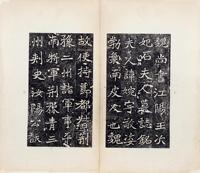 魏尚書江陽王次
妃石夫人墓誌銘
夫人諱婉字敬姿
勃海南皮人也魏
故使持節都督荊
豫二州諸軍事平
南將軍荊豫青三
州刺史汝陽公